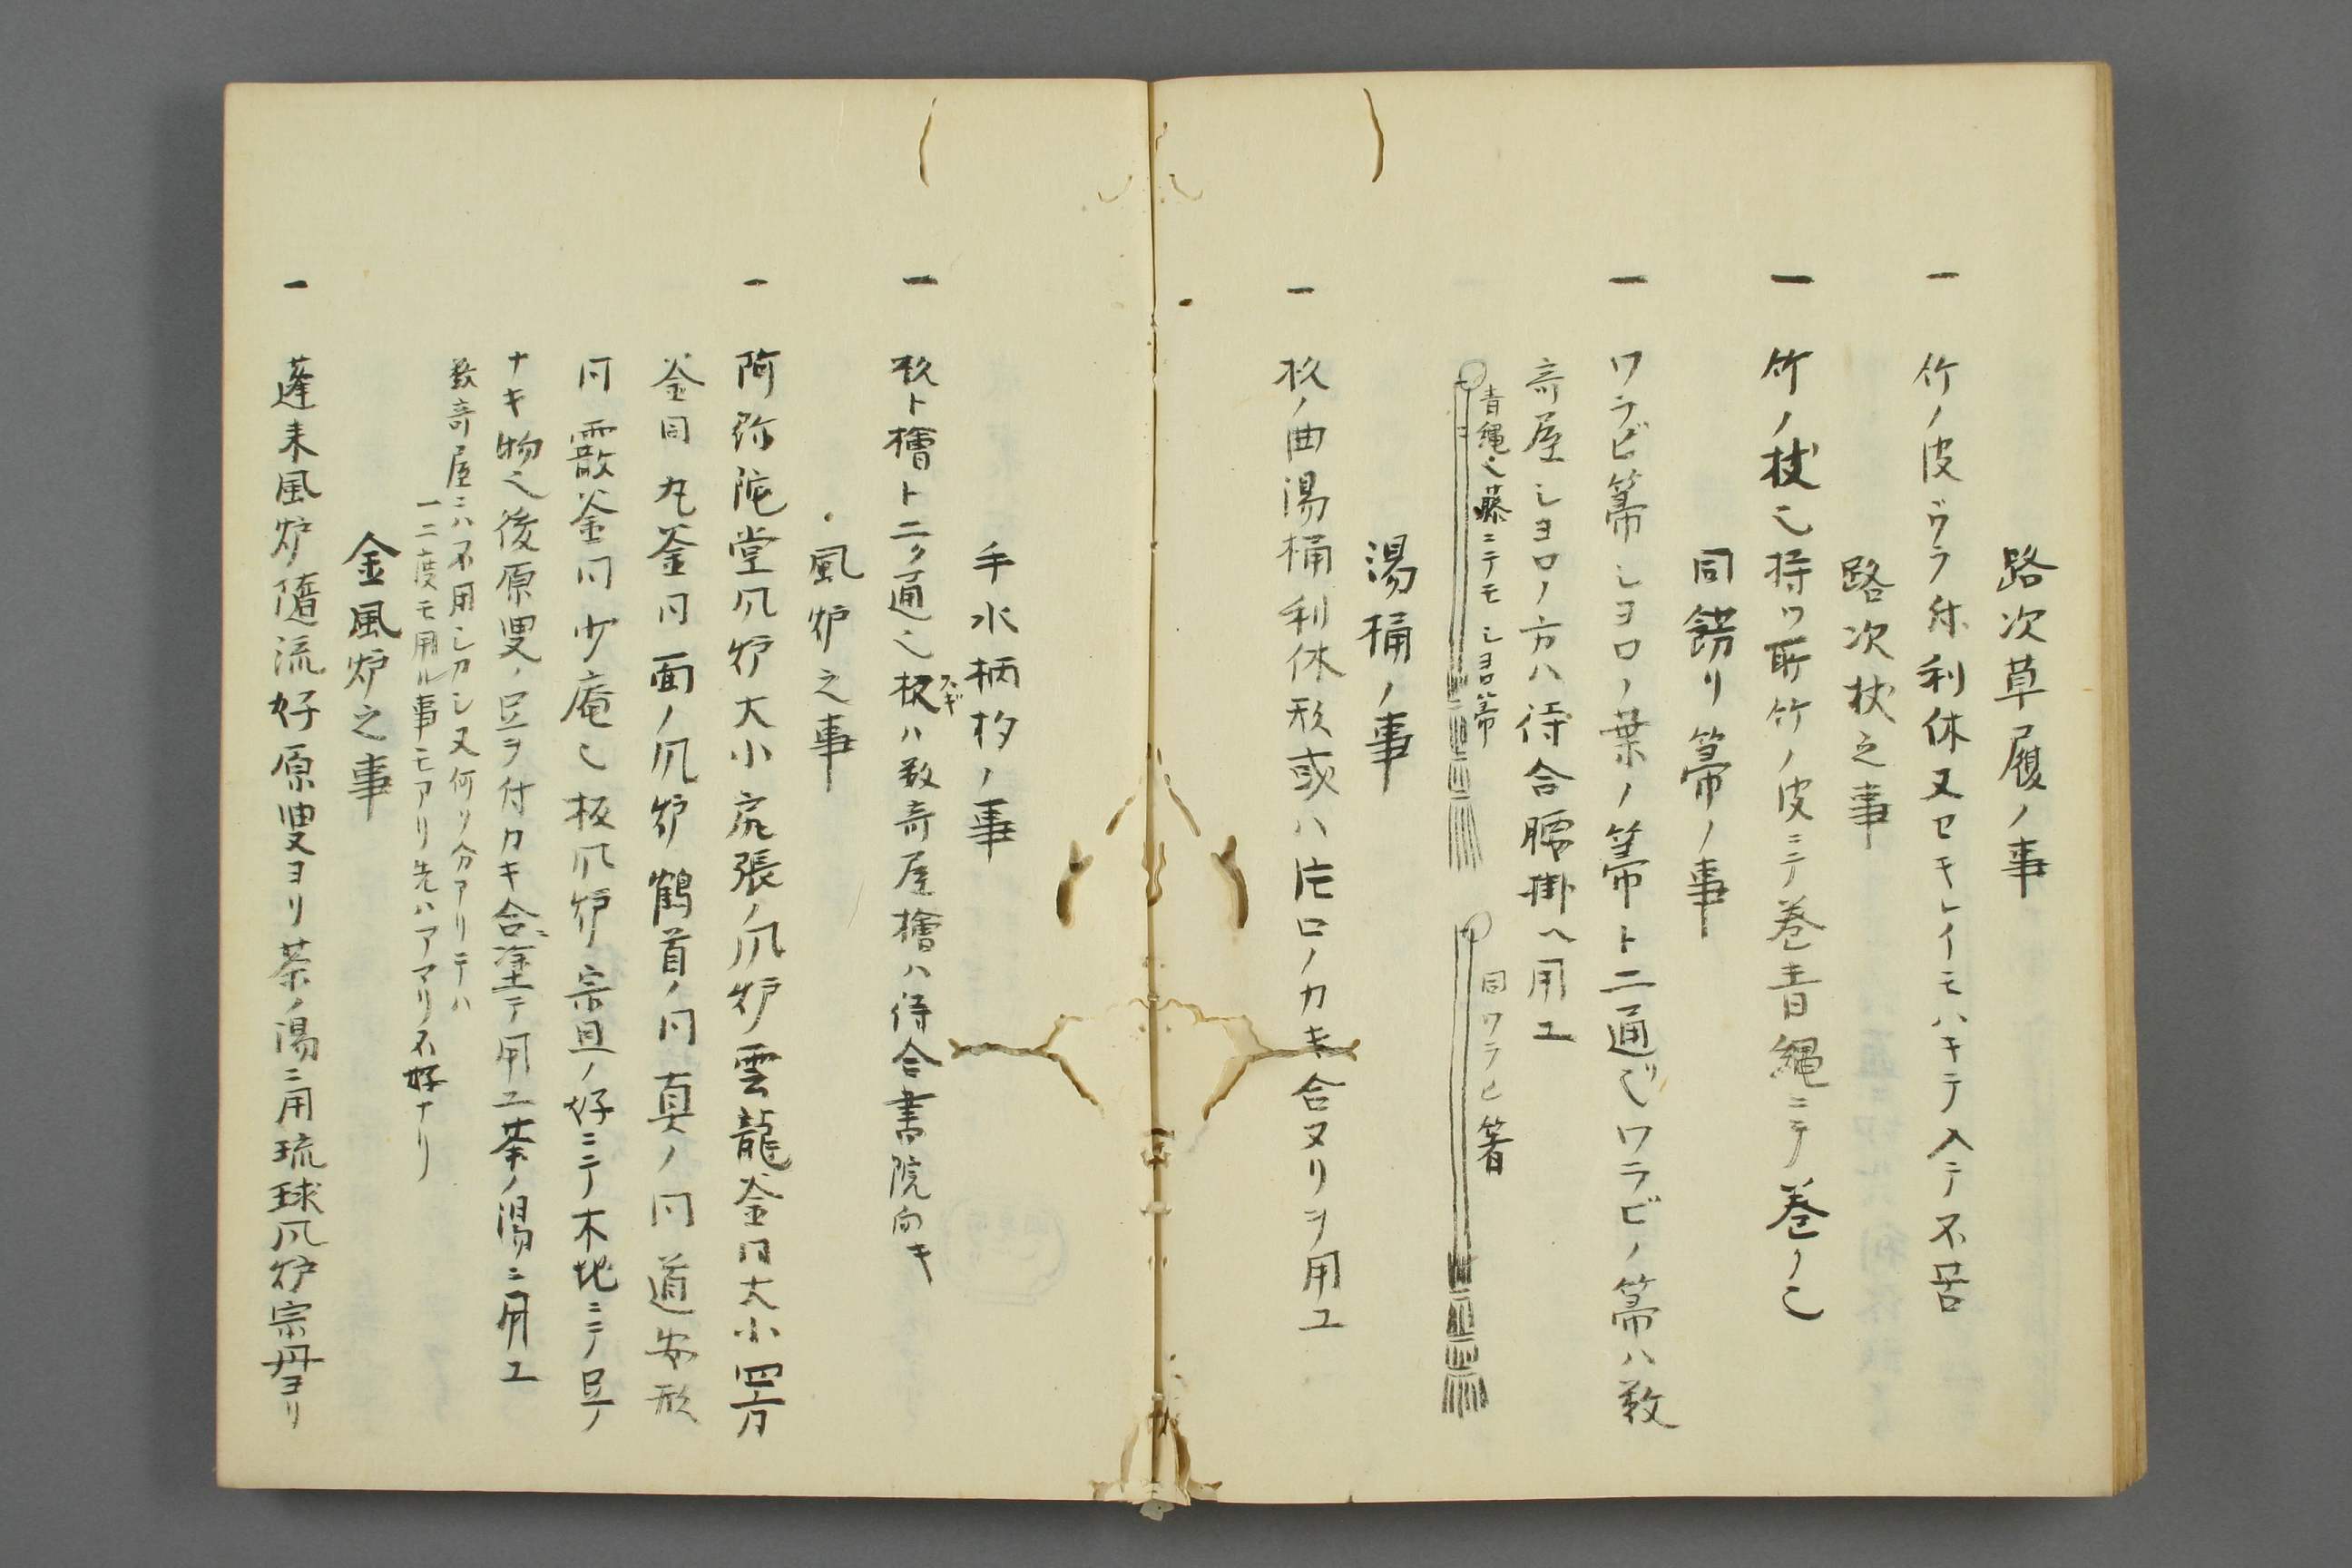 路次草履ノ事
一 竹ノ皮ヅラ 利休又セキレイモハキテ入テ不苦
路次杖之事
一 竹ノ杖也持ツ所竹ノ皮ニテ巻青縄ニテ巻ノ也
同餝リ箒ノ事
一 ワラビ箒シヨロノ葉ノ箒ト二通也ワラビノ箒ハ数
寄屋シヨロノ方ハ待合腰掛ヘ用ユ
青縄也藤ニテモ シヨロ箒
同ワラヒ箒
湯桶ノ事
一 杉ノ曲湯桶利休形或ハ片口ノカキ合ヌリヲ用ユ
手水柄杓ノ事
一 杉ト檜ト二タ通也杉ハ数寄屋檜ハ待合書院向キ
スギ
風炉之事
一 阿弥陀堂爪炉大小尻張ノ爪炉雲龍釜同大小四方
釜同丸釜同面ノ爪炉鶴首ノ同真ノ同道安形
同霰釜同少庵也板爪炉宗旦ノ好ニテ木地ニテ足ノ
ナキ物也後原叟ノ足ヲ付カキ合塗テ用ユ茶ノ湯ニ用ユ
数寄屋ニハ不用シカシ又何ソ分アリテハ
一二度モ用ル事モアリ先ハアマリ不好ナリ
金風炉之事
一 蓬来風炉随流好原叟ヨリ茶ノ湯ニ用琉球爪炉宗丹ヨリ